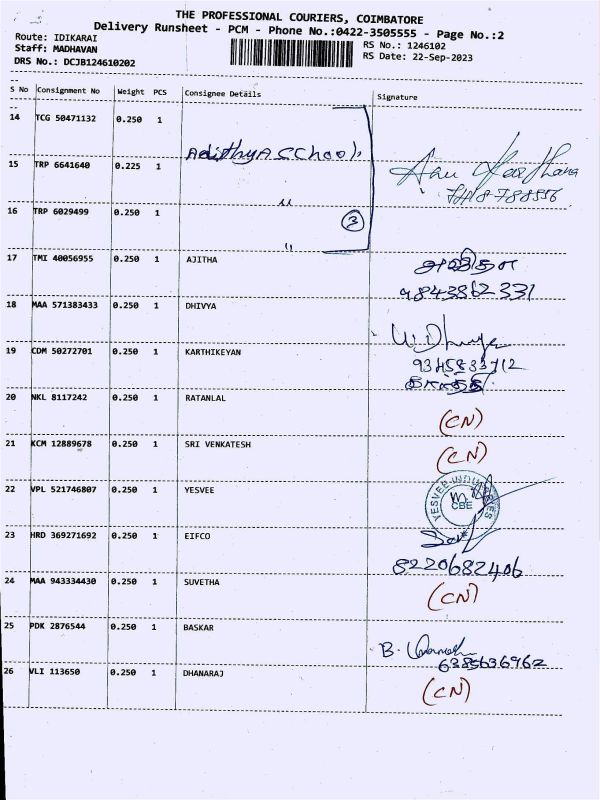 THE PROFESSIONAL COURIERS, COIMBATORE
Delivery Runsheet - PCM - Phone No.:0422-3505555 - Page No.:2
Route: IDIKARAI
RS No.: 1246102
Staff: MADHAVAN
RS Date: 22-Sep-2023
DRS No.: DCJB124610202
S No Consignment No Weight PCS Consignee Details Signature
14 TCG 50471132 0.250 1
AdithyA SChool
15 TRP 6641640 0.225 1
〃
16 TRP 6029499 0.250 1
3
〃
17 TMI 40056955 0.250 1 AJITHA
அஜிதா
9843862331
18 MAA 571383433 0.250 1 DHIVYA
19 CDM 50272701 0.250 1 KARTHIKEYAN
9345833712
20 NKL 8117242 0.250 1 RATANLAL
(CN)
21 KCM 12889678 0.250 1 SRI VENKATESH
(CN)
22 VPL 521746807 0.250 1 YESVEE
YESVEE INDUSTRIES
CBE
23 HRD 369271692 0.250 1 EIFCO
8220682406
24 MAA 943334430 0.250 1 SUVETHA
(CN)
25 PDK 2876544 0.250 1 BASKAR
B.
6385636962
26 VLI 113650 0.250 1 DHANARAJ
(CN)